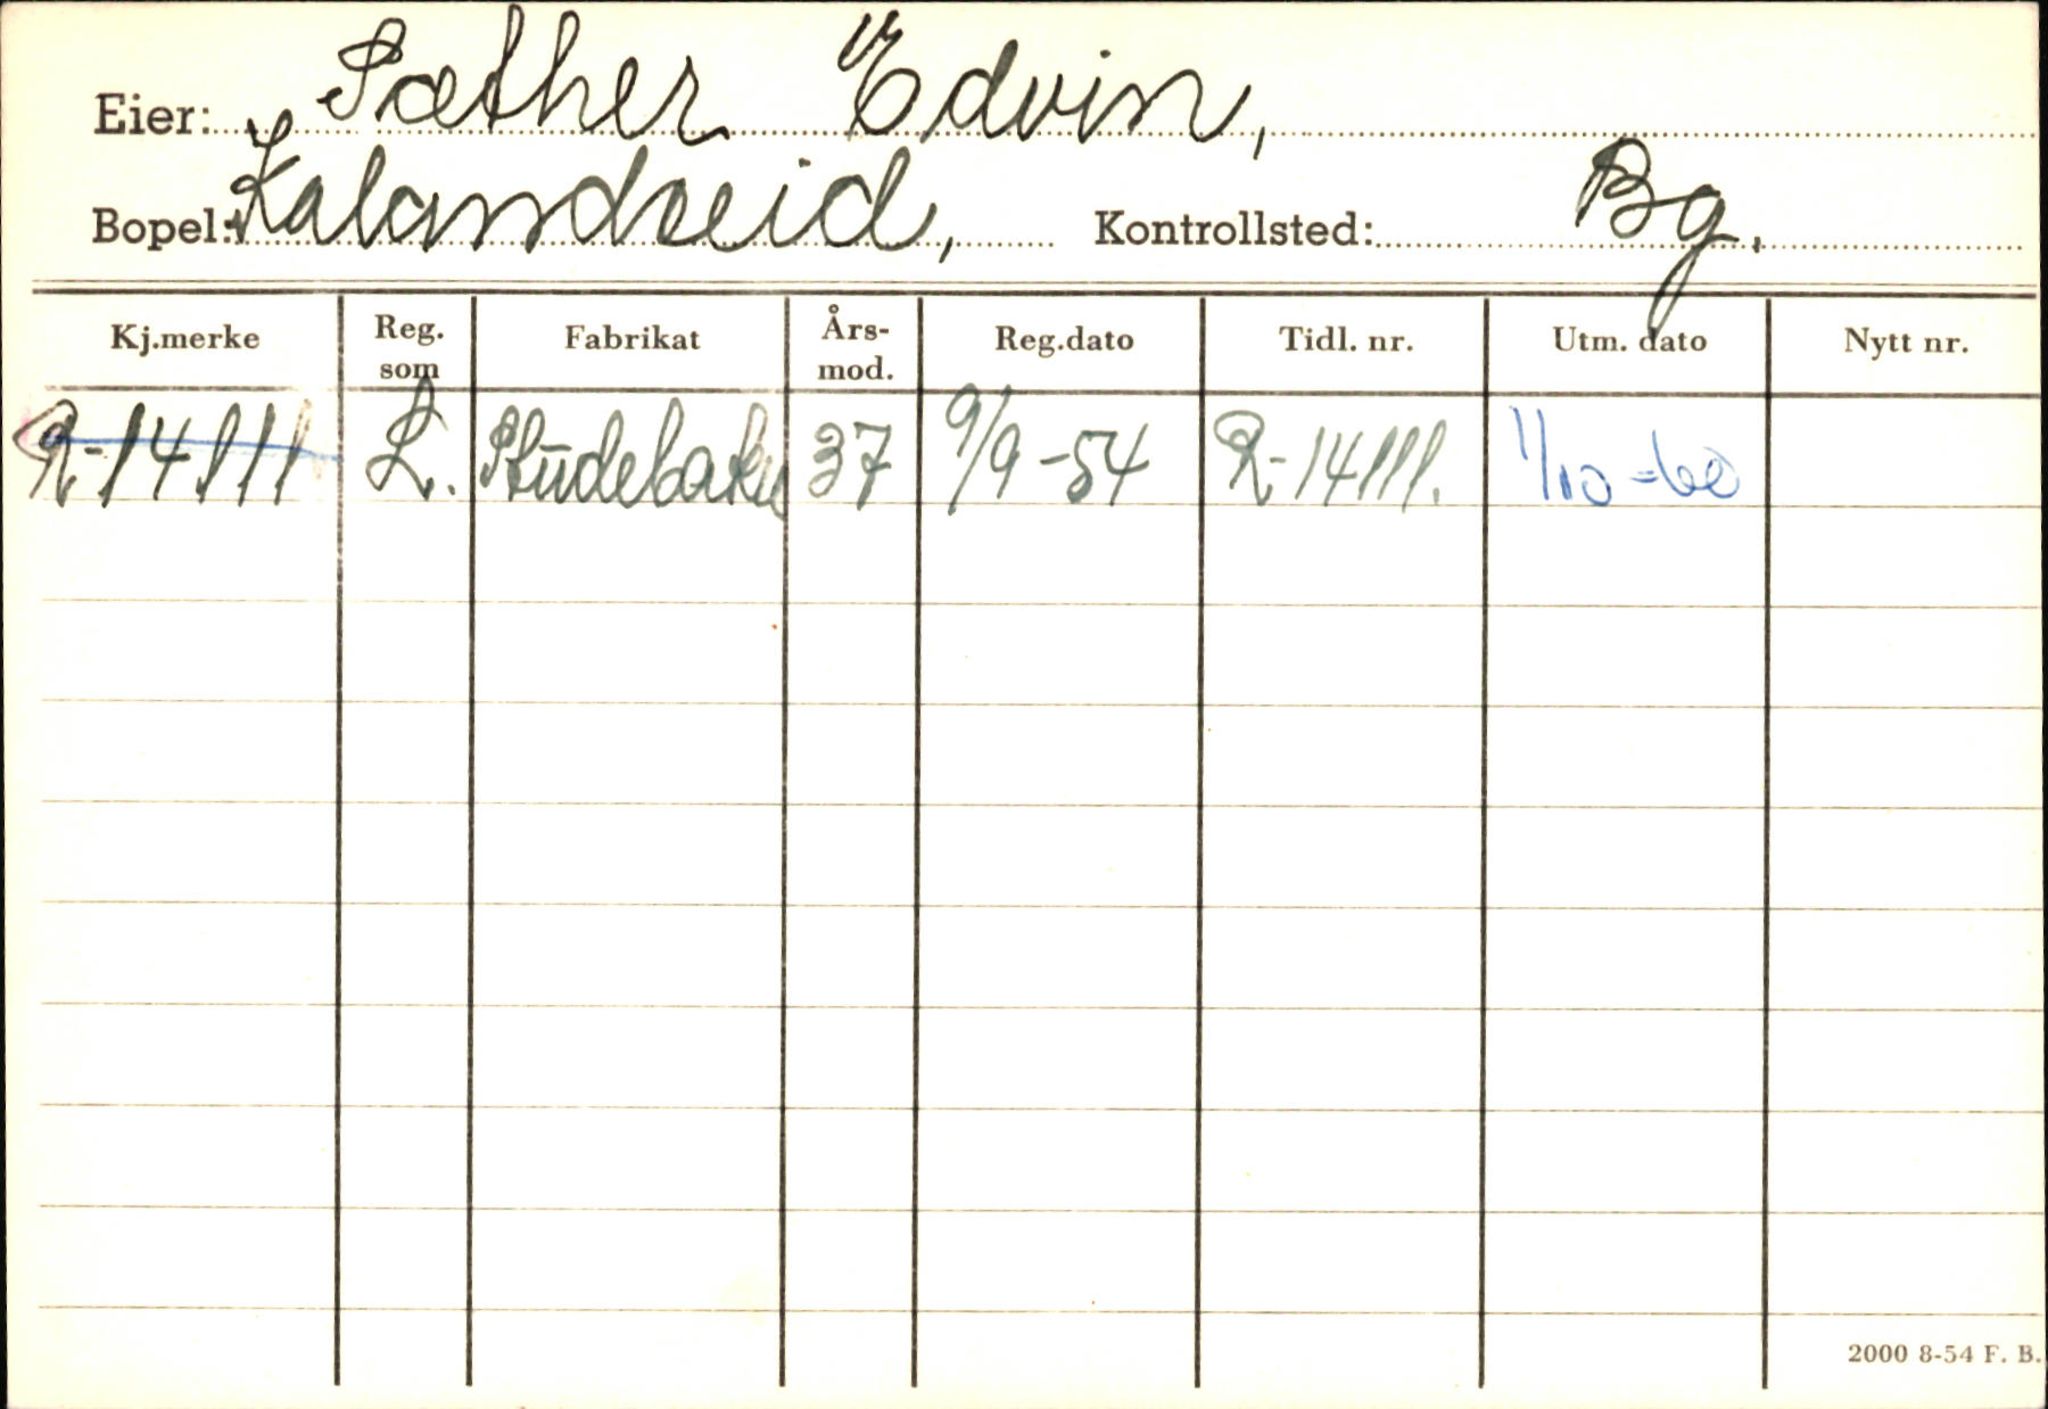 Eier: Sæther Edvin,
Bopel: Kalandseid, Kontrollsted: Bg.
Kj.merke Reg. som Fabrikat Års-mod. Reg.dato Tidl. nr. Utm. dato Nytt nr.
R-14111 L. Studebaker 37 9/9-54 R-14111. 1/10-60
2000 8-54 F. B.